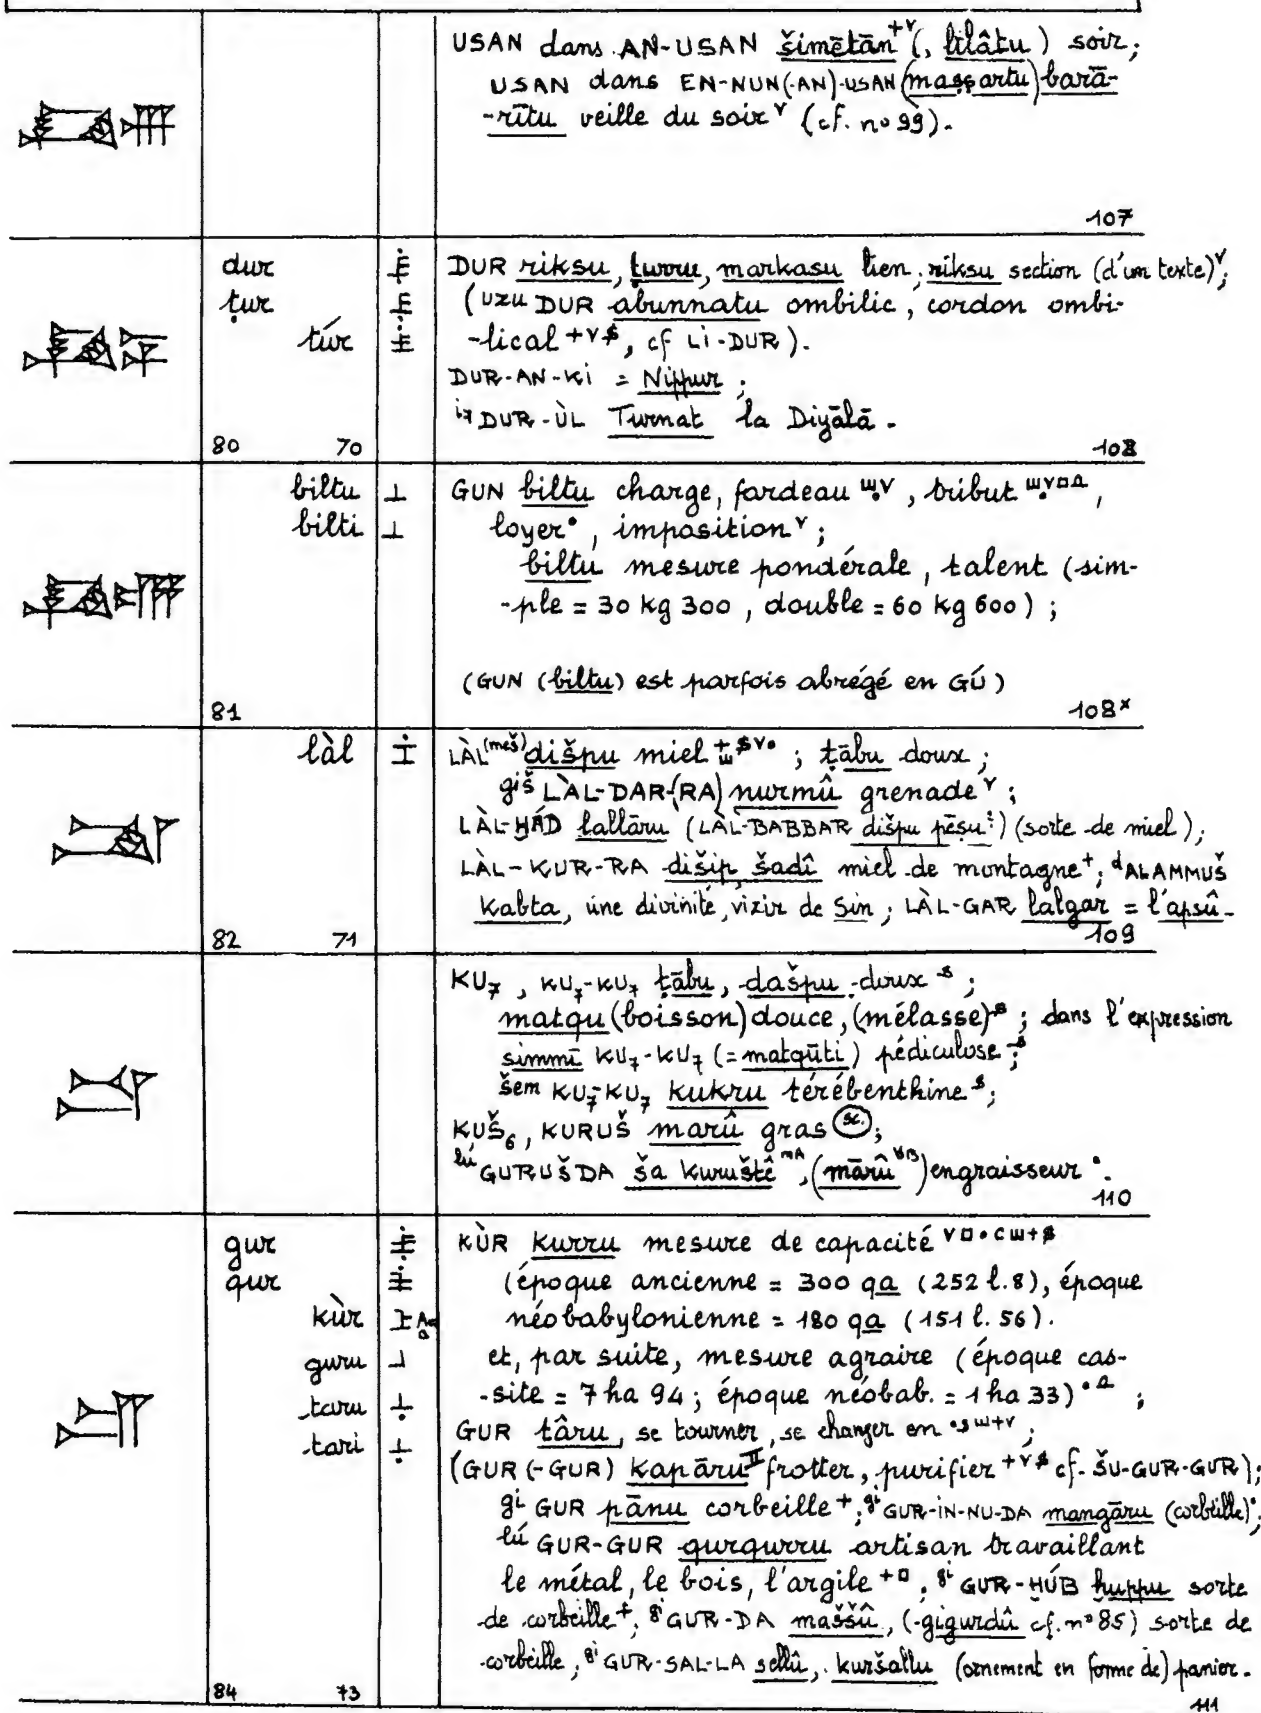 USAN dans AN-USAN šimētān (, lilâtu) soir;
USAN dans EN-NUN(-AN)-USAN (maṣṣartu) barā-
-rītu veille du soir (cf. n° 99).
107
dur
ṭur
túr
DUR riksu, ṭurru, markasu lien; riksu section (d'un texte);
(uzu DUR abunnatu ombilic, cordon ombi-
-lical, cf LI-DUR).
DUR-AN-KI = Nippur;
DUR-ÙL Turnat la Diyālā.
80 70 108
biltu
bilti
GUN biltu charge, fardeau, tribut,
loyer, imposition;
biltu mesure pondérale, talent (sim-
-ple = 30 kg 300, double = 60 kg 600);
(GUN (biltu) est parfois abrégé en GÚ)
81 108x
làl
LÀL(meš) dišpu miel; ṭābu doux;
giš LÀL-DAR-(RA) nurmû grenade;
LÀL-ḪÁD lallāru (LÀL-BABBAR dišpu pēṣu?) (sorte de miel);
LÀL-KUR-RA dišip šadî miel de montagne+; dALAMMUŠ
Kabta, une divinité, vizir de Sin; LÀL-GAR lalgar = l'apsû.
82 71 109
KU7, KU7-KU7 ṭābu, dašpu doux;
matqu (boisson) douce, (mélasse); dans l'expression
simmi KU7-KU7 (= matqūti) pédiculose;
šem KU7-KU7 kukru térébenthine;
KUŠ6, KURUŠ marû gras (sc.);
lú GURUŠDA ša kuruštê, (mārû) engraisseur.
110
gur
qur
kùr
guru
taru
tari
KÙR kurru mesure de capacité
(époque ancienne = 300 qa (252 l. 8), époque
néobabylonienne = 180 qa (151 l. 56).
et, par suite, mesure agraire (époque cas-
-site = 7 ha 94; époque néobab. = 1 ha 33);
GUR târu, se tourner, se changer en;
(GUR (-GUR) kapāru II frotter, purifier cf. ŠU-GUR-GUR);
gi GUR pānu corbeille+; gi GUR-IN-NU-DA mangāru (corbeille);
lú GUR-GUR qurqurru artisan travaillant
le métal, le bois, l'argile; gi GUR-ḪÚB ḫuppu sorte
de corbeille+; gi GUR-DA maššû, (gigurdû cf. n° 85) sorte de
corbeille; gi GUR-SAL-LA sellû, kuršallu (ornement en forme de) panier.
84 73 111